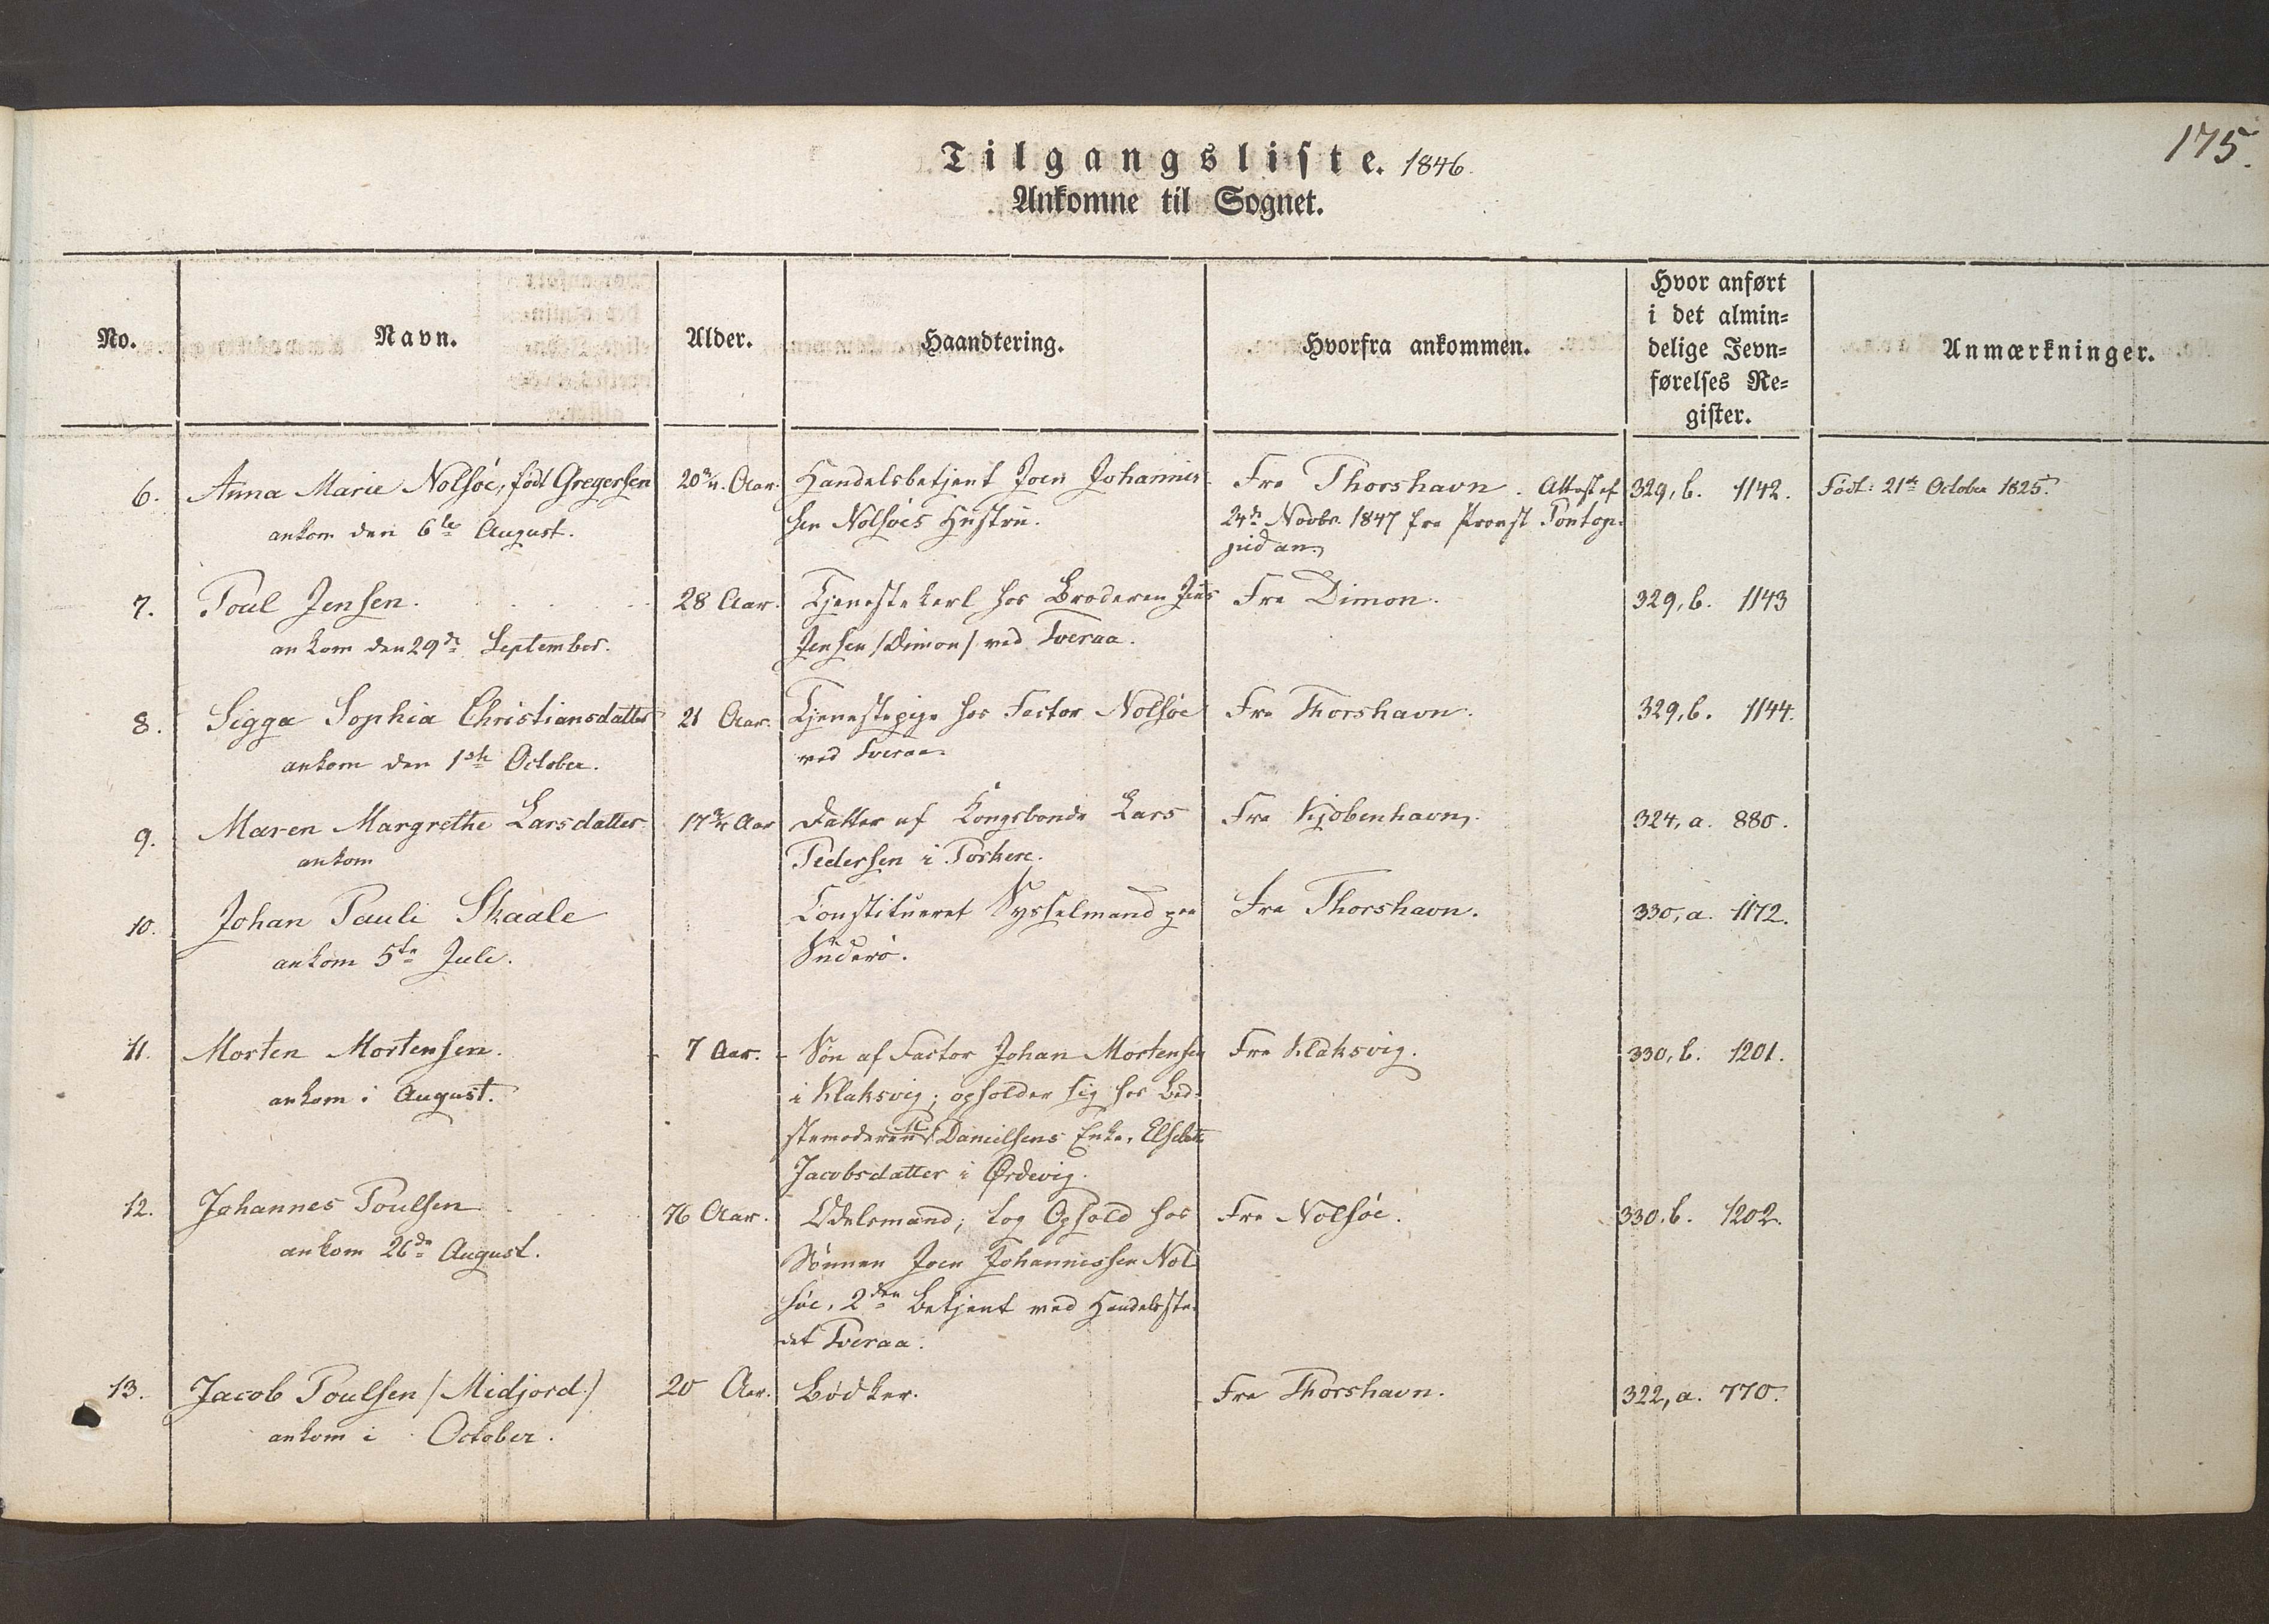 175.
Tilgangsliste. 1846.
Ankomne til Sognet.
No. Navn. Alder. Haandtering. Hvorfra ankommen. Hvor anført i det almin= delige Jevn= førelses Re= gister. Anmærkninger.
6. Anna Marie Nolsöe, född Gregersen 20¾. Aar. Handelsbetjent Joen Johannes- Fra Thorshavn. Attest af 329, b. 1142. Född: 21de October 1825.
ankom den 6te August. sen Nolsöes Hustru. 24de Novbr. 1847 fra Provst Pontop-
pidan.
7. Poul Jensen. 28 Aar. Tjenestekarl hos Broderen Jens Fra Dimon. 329, b. 1143
ankom den 29de September. Jensen /Dimon/ ved Tveraa.
8. Sigga Sophia Christiansdatter 21 Aar. Tjenestepige hos Factor Nolsöe Fra Thorshavn. 329, b. 1144.
ankom den 1ste October. ved Tveraa.
9. Maren Margrethe Larsdatter 17¾ Aar Datter af Kongsbonde Lars Fra Kjöbenhavn. 324, a. 880.
ankom Pedersen i Porkere.
10. Johan Pauli Skaale Constitueret Sysselmand paa Fra Thorshavn. 330, a. 1172.
ankom 5te Juli. Suderö.
11. Morten Mortensen. 7 Aar. Sön af Factor Johan Mortensen Fra Klaksvig. 330, b. 1201.
ankom i August. i Klaksvig; opholder sig hos Bed-
stemoderen Danielsens Enke, Elsebeth
Jacobsdatter i Ørdevig.
12. Johannes Poulsen 76 Aar. Odelsmand; tog Ophold hos Fra Nolsöe. 330, b. 1202.
ankom 26de August. Sönnen Joen Johannessen Nol-
söe, 2den Betjent ved Handelsste-
det Tveraa.
13. Jacob Poulsen /Midjord/ 20 Aar. Bödker. Fra Thorshavn. 322, a. 770.
ankom i October.